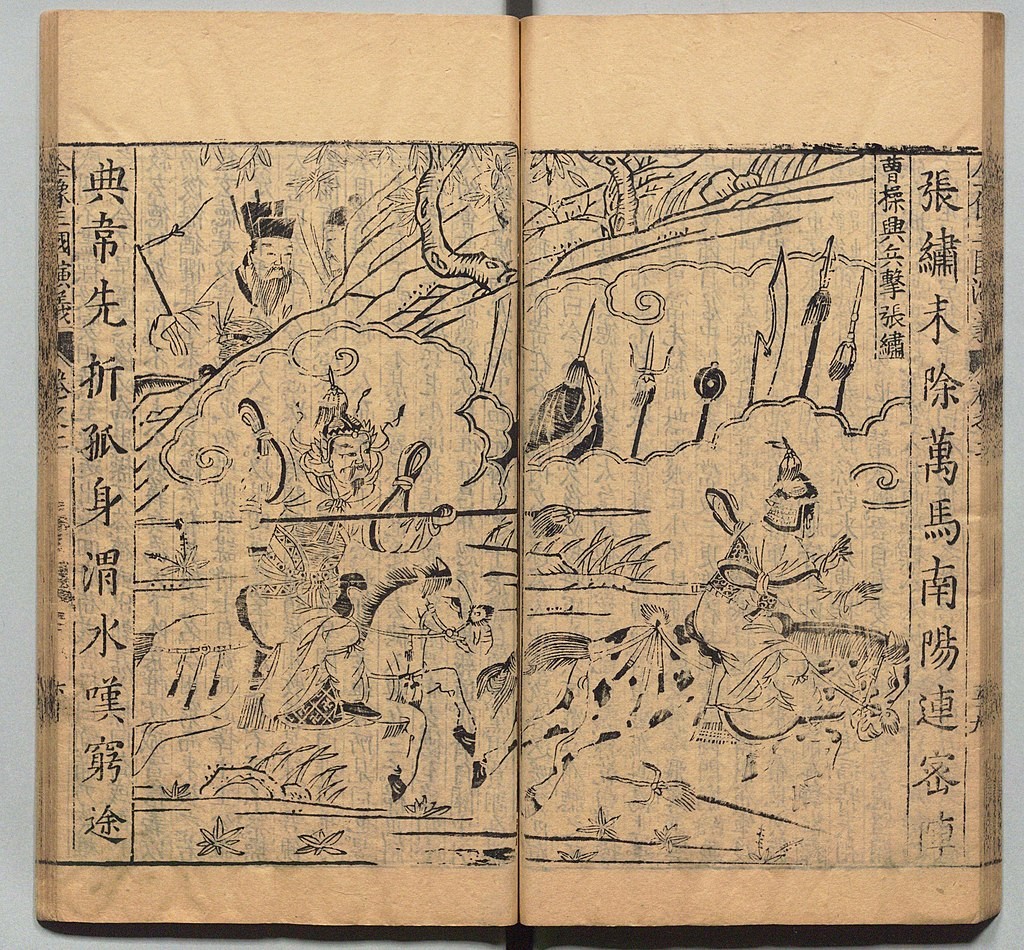 張繡未除萬馬南陽連密陣
曹操興兵擊張繡
典韋先折孤身渭水嘆窮途
全像三國演義 卷之二